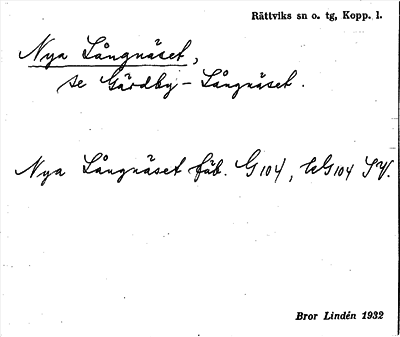 Rättviks sn o. tg, Kopp. l.
Nya Långnäset,
se Gärdby-Långnäset.
Nya Långnäset fäb. G 104, UG 104 SV.
Bror Lindén 1932